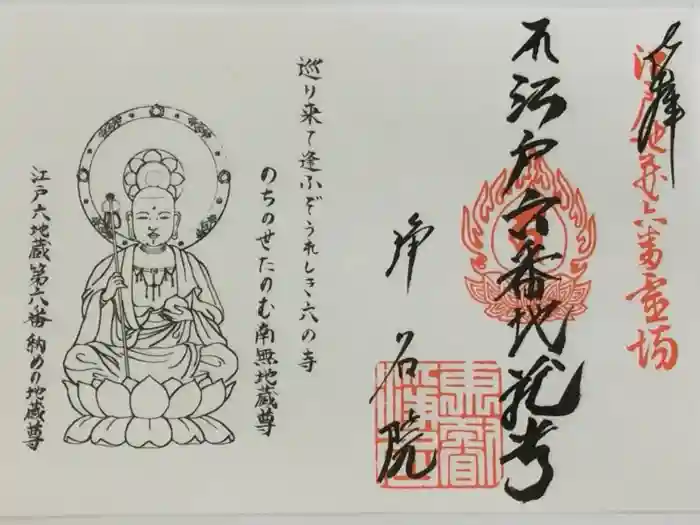 奉拝
江戸地蔵六番霊場
江戸六番地蔵尊
浄名院
巡り来て逢ふぞうれしき六の寺
のちのせたのむ南無地蔵尊
江戸六地蔵第六番納めの地蔵尊